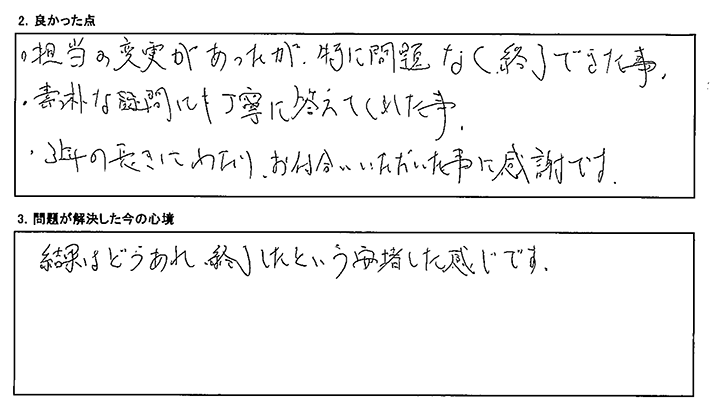 2. 良かった点
・担当の変更があったが、特に問題なく、終了できた事。
・素朴な疑問にも丁寧に答えてくれた事。
・3年の長きにわたり、お付合いいただいた事に感謝です。
3. 問題が解決した今の心境
結果はどうあれ、終了したという安堵した感じです。